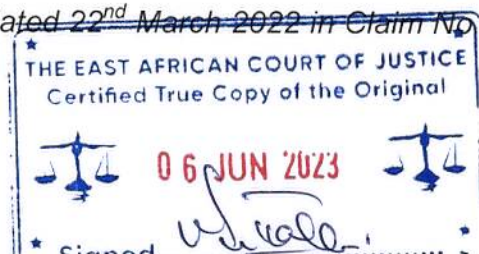 ated 22nd March 2022 in Claim No
THE EAST AFRICAN COURT OF JUSTICE
Certified True Copy of the Original
06 JUN 2023
Signed